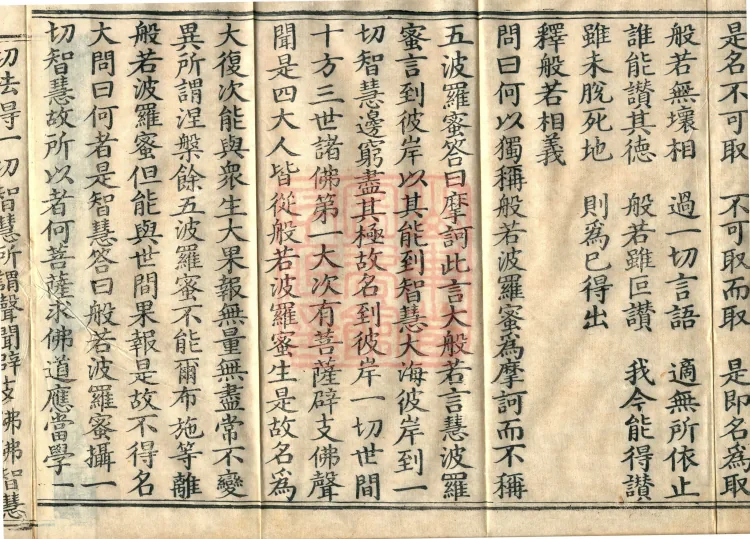 是名不可取　不可取而取　是即名為取
般若無壞相　過一切言語　適無所依止
誰能讚其德　般若雖叵讚　我今能得讚
雖未脫死地　則為已得出
釋般若相義
問曰何以獨稱般若波羅蜜為摩訶而不稱
五波羅蜜答曰摩訶此言大般若言慧波羅
蜜言到彼岸以其能到智慧大海彼岸到一
切智慧邊窮盡其極故名到彼岸一切世間
十方三世諸佛第一大次有菩薩辟支佛聲
聞是四大人皆從般若波羅蜜生是故名為
大復次能與衆生大果報無量無盡常不變
異所謂涅槃餘五波羅蜜不能爾布施等離
般若波羅蜜但能與世間果報是故不得名
大問曰何者是智慧答曰般若波羅蜜攝一
切智慧故所以者何菩薩求佛道應當學一
切法得一切智慧所謂聲聞辟支佛佛智慧